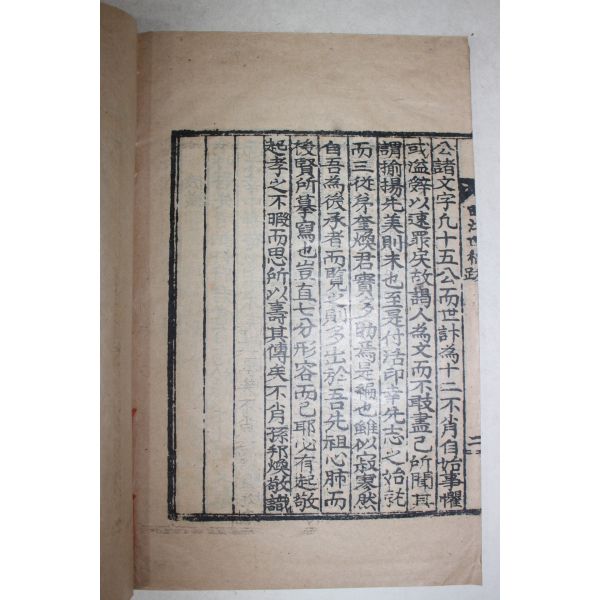 公諸文字凡十五公而世計為十二不肖自始事懼
或溢辭以速罪戾故謁人為文而不敢盡己所聞其
謂揄揚先美則末也至是付活印幸先志之始託
而三從弟奎煥君實多助焉是編也雖似寂寥然
自吾為後承者而覽之則多出於吾先祖心肺而
後賢所摹寫也豈直七分形容而已耶必有起敬
起孝之不暇而思所以壽其傳矣不肖孫邦煥敬識
世稿跋
二